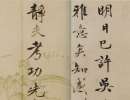 明日已許吳
雅意矣知感
靜夫考功兄